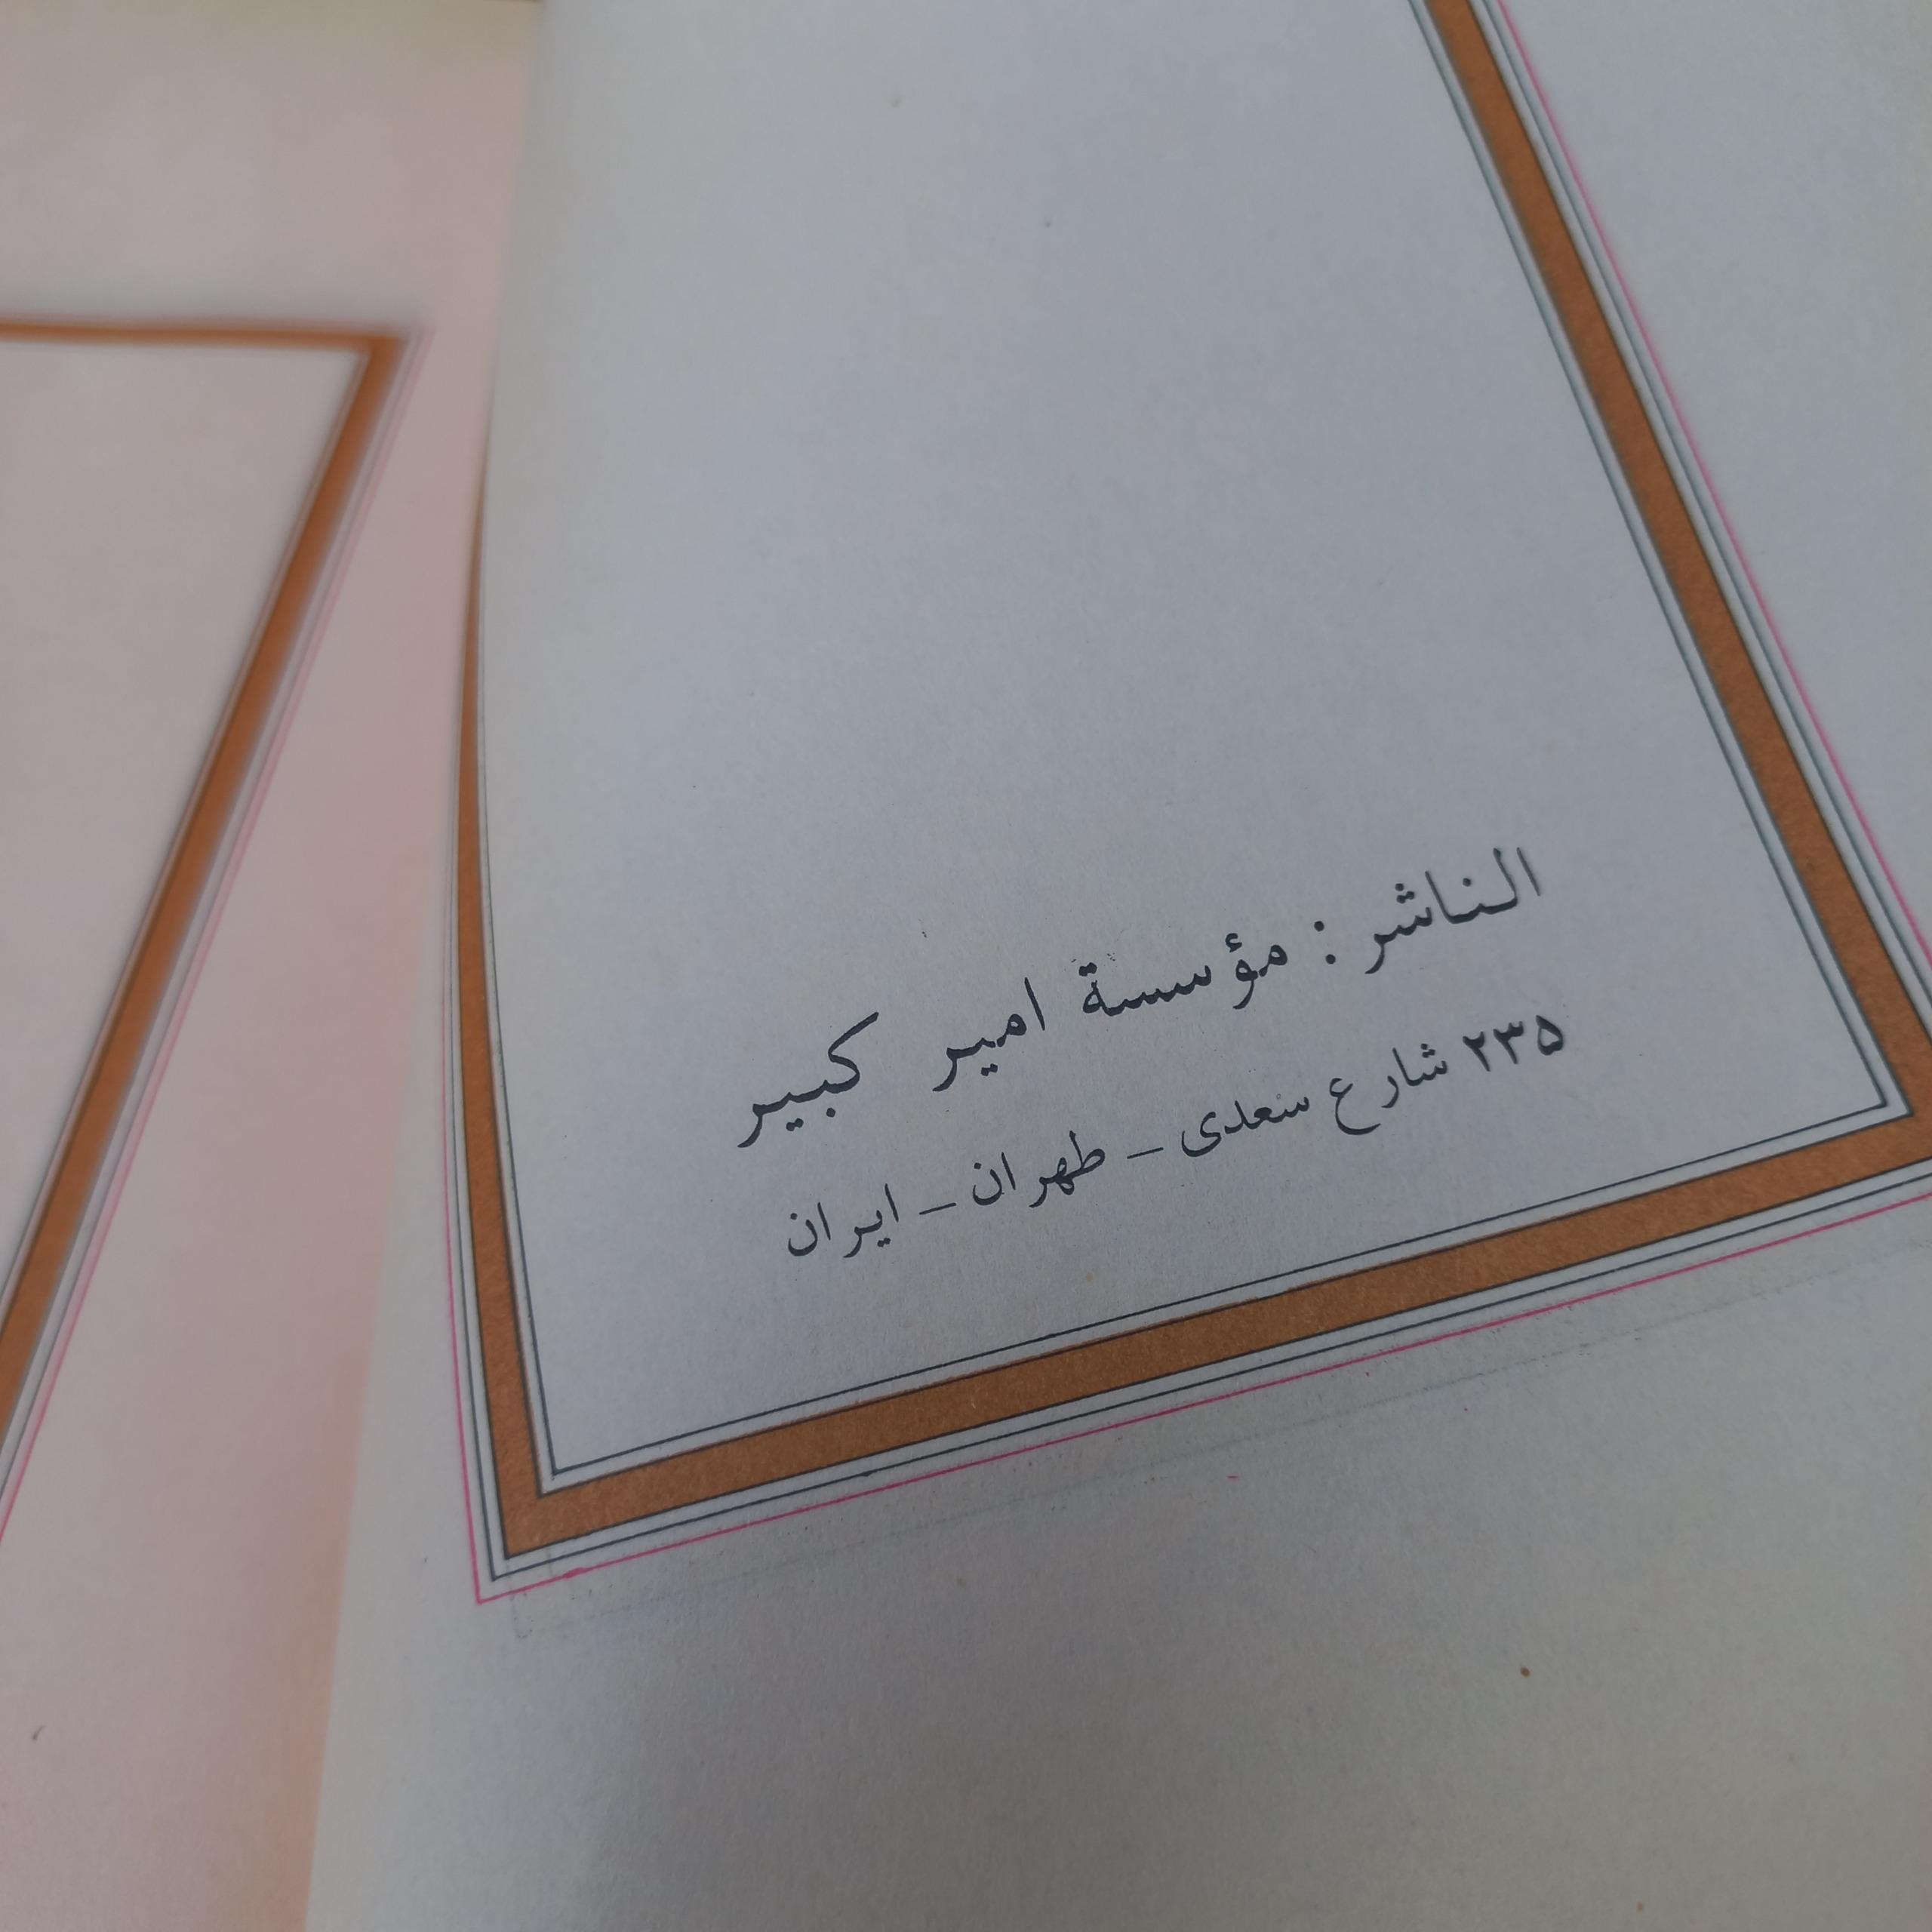 الناشر : مؤسسة امير كبير
۲۳۵ شارع سعدى – طهران – ايران